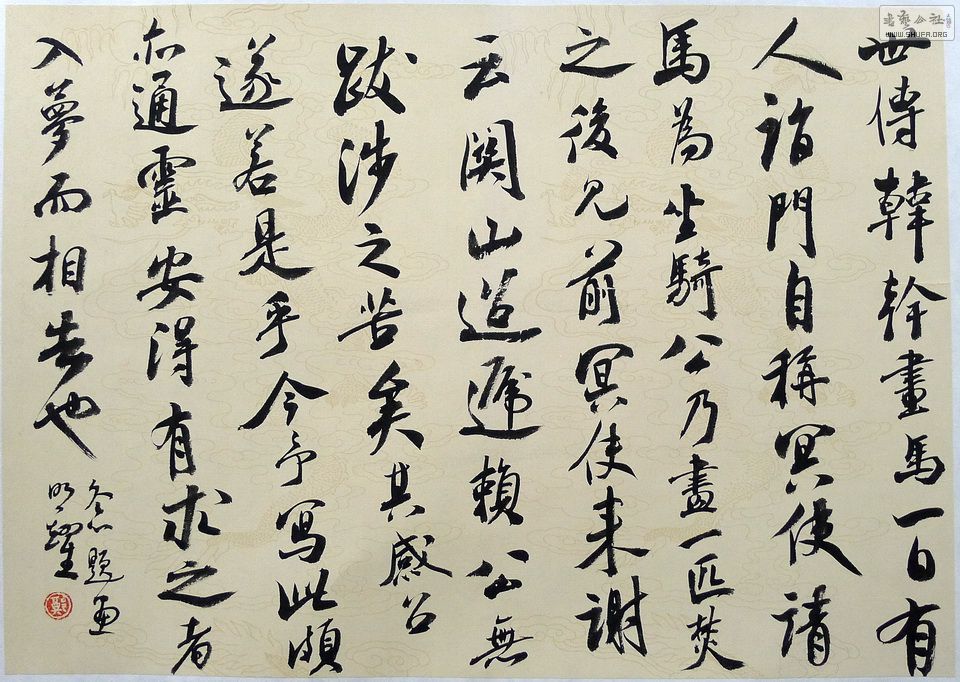 世傳韓幹畫馬一日有
人詣門自稱冥使請
馬為坐騎公乃畫一匹焚
之後見前冥使来謝
云関山迢遞賴公無
跋涉之苦矣其感召
遂若是乎今予寫此頗
亦通靈安得有求之者
入夢而相告也
冬心題画
明耀
鄭
書藝公社
WWW.SHUFA.ORG